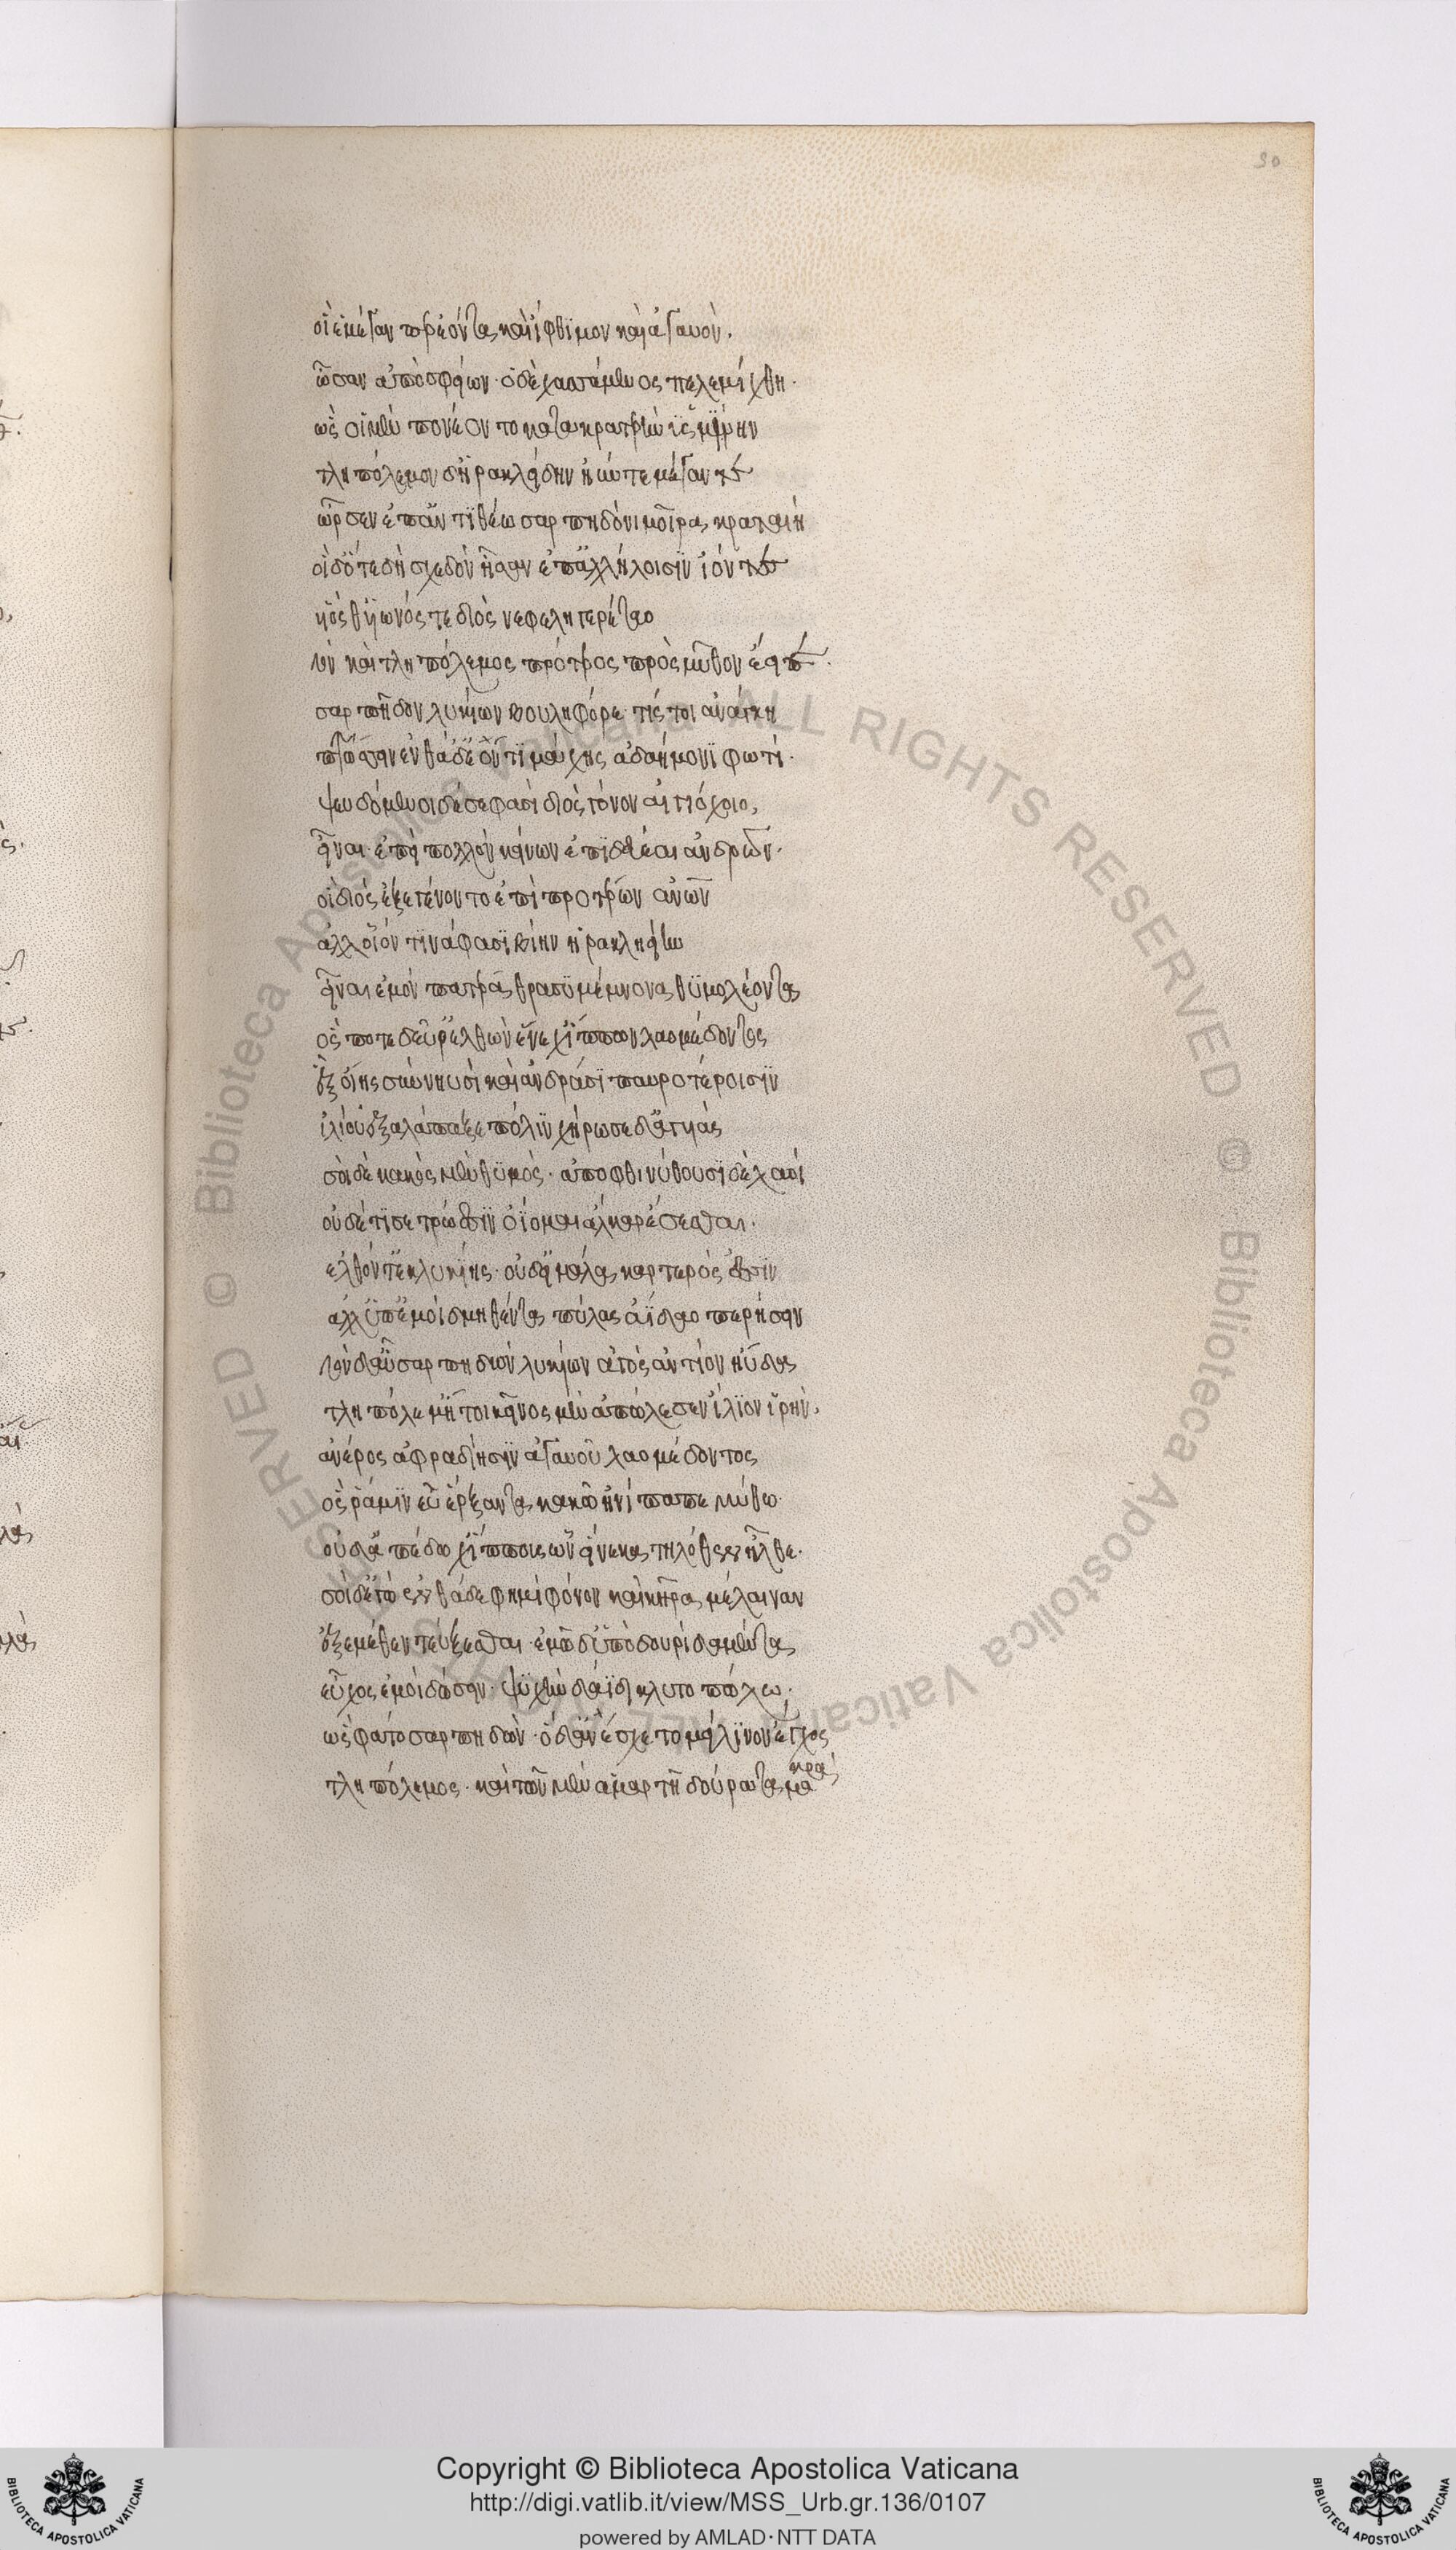 50
οἵ ἑ μέγαν περ ἐόντα καὶ ἴφθιμον καὶ ἀγαυὸν.
ὦσαν ἀπὸ σφείων· ὁ δὲ χασσάμενος πελεμίχθη·
ὣς οἱ μὲν πονέοντο κατὰ κρατερὴν ὑσμίνην
τληπόλεμον δ' ἡρακλείδην ἠΰν τε μέγαν τε
ὦρσεν ἐπ' ἀντιθέω σαρπηδόνι μοῖρα κραταιὴ
οἱ δ' ὅτε δὴ σχεδὸν ἦσαν ἐπ' ἀλλήλοισιν ἰόντες
υἱός θ' υἱωνός τε διὸς νεφεληγερέταο
τὸν καὶ τληπόλεμος πρότερος πρὸς μῦθον ἔειπε·
σαρπῆδον λυκίων βουληφόρε τίς τοι ἀνάγκη
πτώσσειν ἐνθάδ' ἐόντι μάχης ἀδαήμονι φωτί·
ψευδόμενοι δέ σέ φασι διὸς γόνον αἰγιόχοιο,
εἶναι· ἐπεὶ πολλὸν κείνων ἐπιδεύεαι ἀνδρῶν·
οἳ διὸς ἐξεγένοντο ἐπὶ προτέρων ἀνων
ἀλλ' οἷόν τινά φασι βίην ἡρακληείην
εἶναι ἐμὸν πατέρα θρασυμέμνονα θυμολέοντα
ὅς ποτε δεῦρ' ἐλθὼν ἕνεχ' ἵππων λαομέδοντος
ἓξ οἴης σὺν νηυσὶ καὶ ἀνδράσι παυροτέροισιν
ἰλίου ἐξαλάπαξε πόλιν χήρωσε δ' ἀγυιάς
σοὶ δὲ κακὸς μὲν θυμός· ἀποφθινύθουσι δὲ λαοί
οὐδέ τί σε τρώεσσιν ὀΐομαι ἄλκαρ ἔσεσθαι·
ἐλθόντ' ἐκ λυκίης· οὐδ' εἰ μάλα καρτερός ἐσσιν
ἀλλ' ὑπ' ἐμοὶ δμηθέντα πύλας ἀΐδαο περήσειν
τὸν δ' αὖ σαρπηδὼν λυκίων ἀγὸς ἀντίον ηὔδα
τληπόλεμ' ἤτοι κεῖνος μὲν ἀπώλεσεν ἴλιον ἱρὴν,
ἀνέρος ἀφραδίῃσιν ἀγαυοῦ λαομέδοντος
ὅς ῥά μιν εὖ ἕρξαντα κακῷ ἠνίπαπε μύθω·
οὐδ' ἀπέδωχ' ἵππους ὧν εἵνεκα τηλόθεν ἦλθε·
σοὶ δ' ἐγὼ ἐνθάδε φημὶ φόνον καὶ κῆρα μέλαιναν
ἐξ ἐμέθεν τεύξεσθαι· ἐμῷ δ' ὑπὸ δουρὶ δαμέντα
εὖχος ἐμοὶ δώσειν· ψυχὴν δ' ἄϊδι κλυτοπώλω·
ὣς φάτο σαρπηδὼν· ὁ δ' ἀνέσχετο μείλινον ἔγχος
τληπόλεμος· καὶ τῶν μὲν ἁμαρτῆ δούρατα μακρά
Copyright © Biblioteca Apostolica Vaticana
http://digi.vatlib.it/view/MSS_Urb.gr.136/0107
powered by AMLAD·NTT DATA